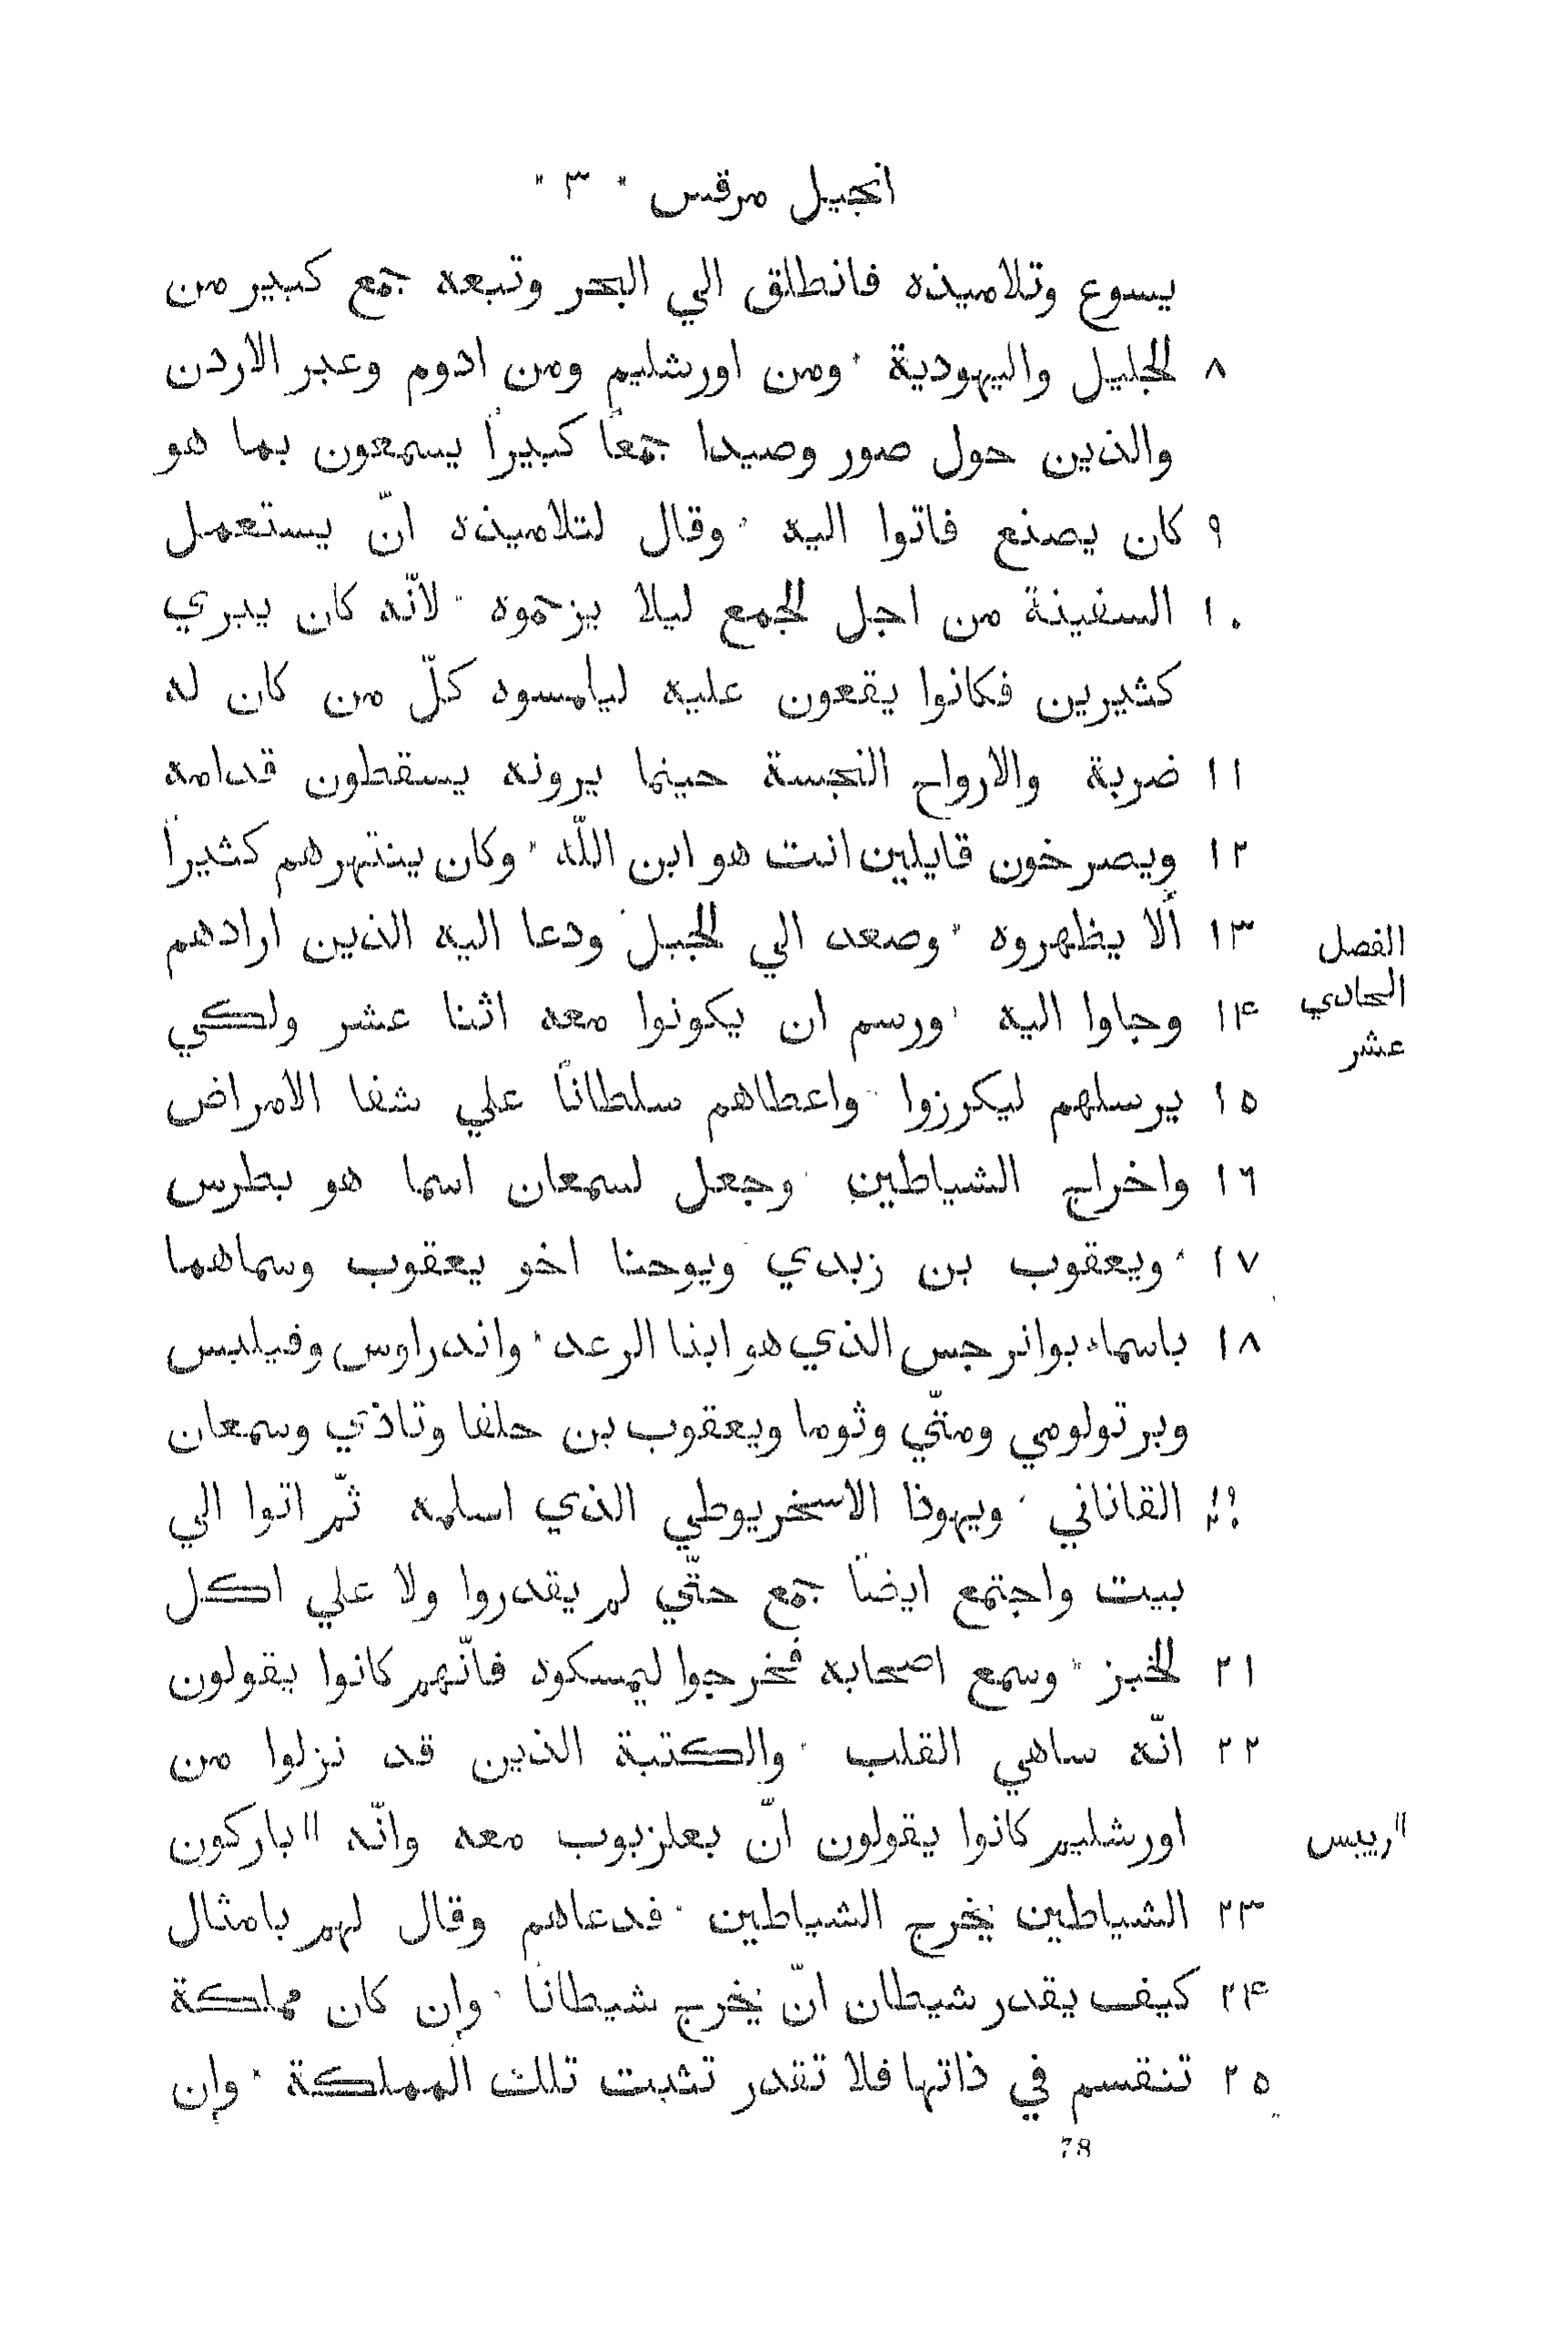 انجيل مرقس " ٣ "
يسوع وتلاميذه فانطلق الي البحر وتبعه جمع كبير من
٨ الجليل واليهودية ٠ ومن اورشليم ومن ادوم وعبر الاردن
والذين حول صور وصيدا جمعاً كبيراً يسمعون بما هو
٩ كان يصنع فاتوا اليه ٠ وقال لتلاميذه انّ يستعمل
١٠ السفينة من اجل الجمع ليلا يزحموه ٠ لانّه كان يبري
كثيرين فكانوا يقعون عليه ليلمسوه كلّ من كان له
١١ ضربة والارواح النجسة حينما يرونه يسقطون قدامه
١٢ ويصرخون قايلين انت هو ابن اللّه ٠ وكان ينتهرهم كثيراً
١٣ ألا يظهروه ٠ وصعد الي الجبل ودعا اليه الذين ارادهم
الفصل
الحادي
عشر
١۴ وجاوا اليه ٠ ورسم ان يكونوا معه اثنا عشر ولكي
١٥ يرسلهم ليكرزوا ٠ واعطاهم سلطاناً علي شفا الامراض
١٦ واخراج الشياطين ٠ وجعل لسمعان اسما هو بطرس
١٧ ٠ ويعقوب بن زبدي ويوحنا اخو يعقوب وسماهما
١٨ باسماء بوانرجس الذي هو ابنا الرعد ٠ واندراوس وفيلبس
وبرتولومي ومتّي وثوما ويعقوب بن حلفا وتاذي وسمعان
١٩ ٢٠ القاناني ٠ ويهوذا الاسخريوطي الذي اسلمه ثمّ اتوا الي
بيت واجتمع ايضاً جمع حتّي لم يقدروا ولا علي اكل
٢١ الخبز " وسمع اصحابه فخرجوا ليمسكوه فانّهم كانوا يقولون
٢٢ انّه ساهي القلب ٠ والكتبة الذين قد نزلوا من
اورشليم كانوا يقولون انّ بعلزبوب معه وانّه اا باركون
اا رييس
٢٣ الشياطين يخرج الشياطين ٠ فدعاهم وقال لهم بامثال
٢۴ كيف يقدر شيطان انّ يخرج شيطانا ٠ وإن كان مملكة
٢٥ تنقسم في ذاتها فلا تقدر تثبت تلك المملكة ٠ وإن
78